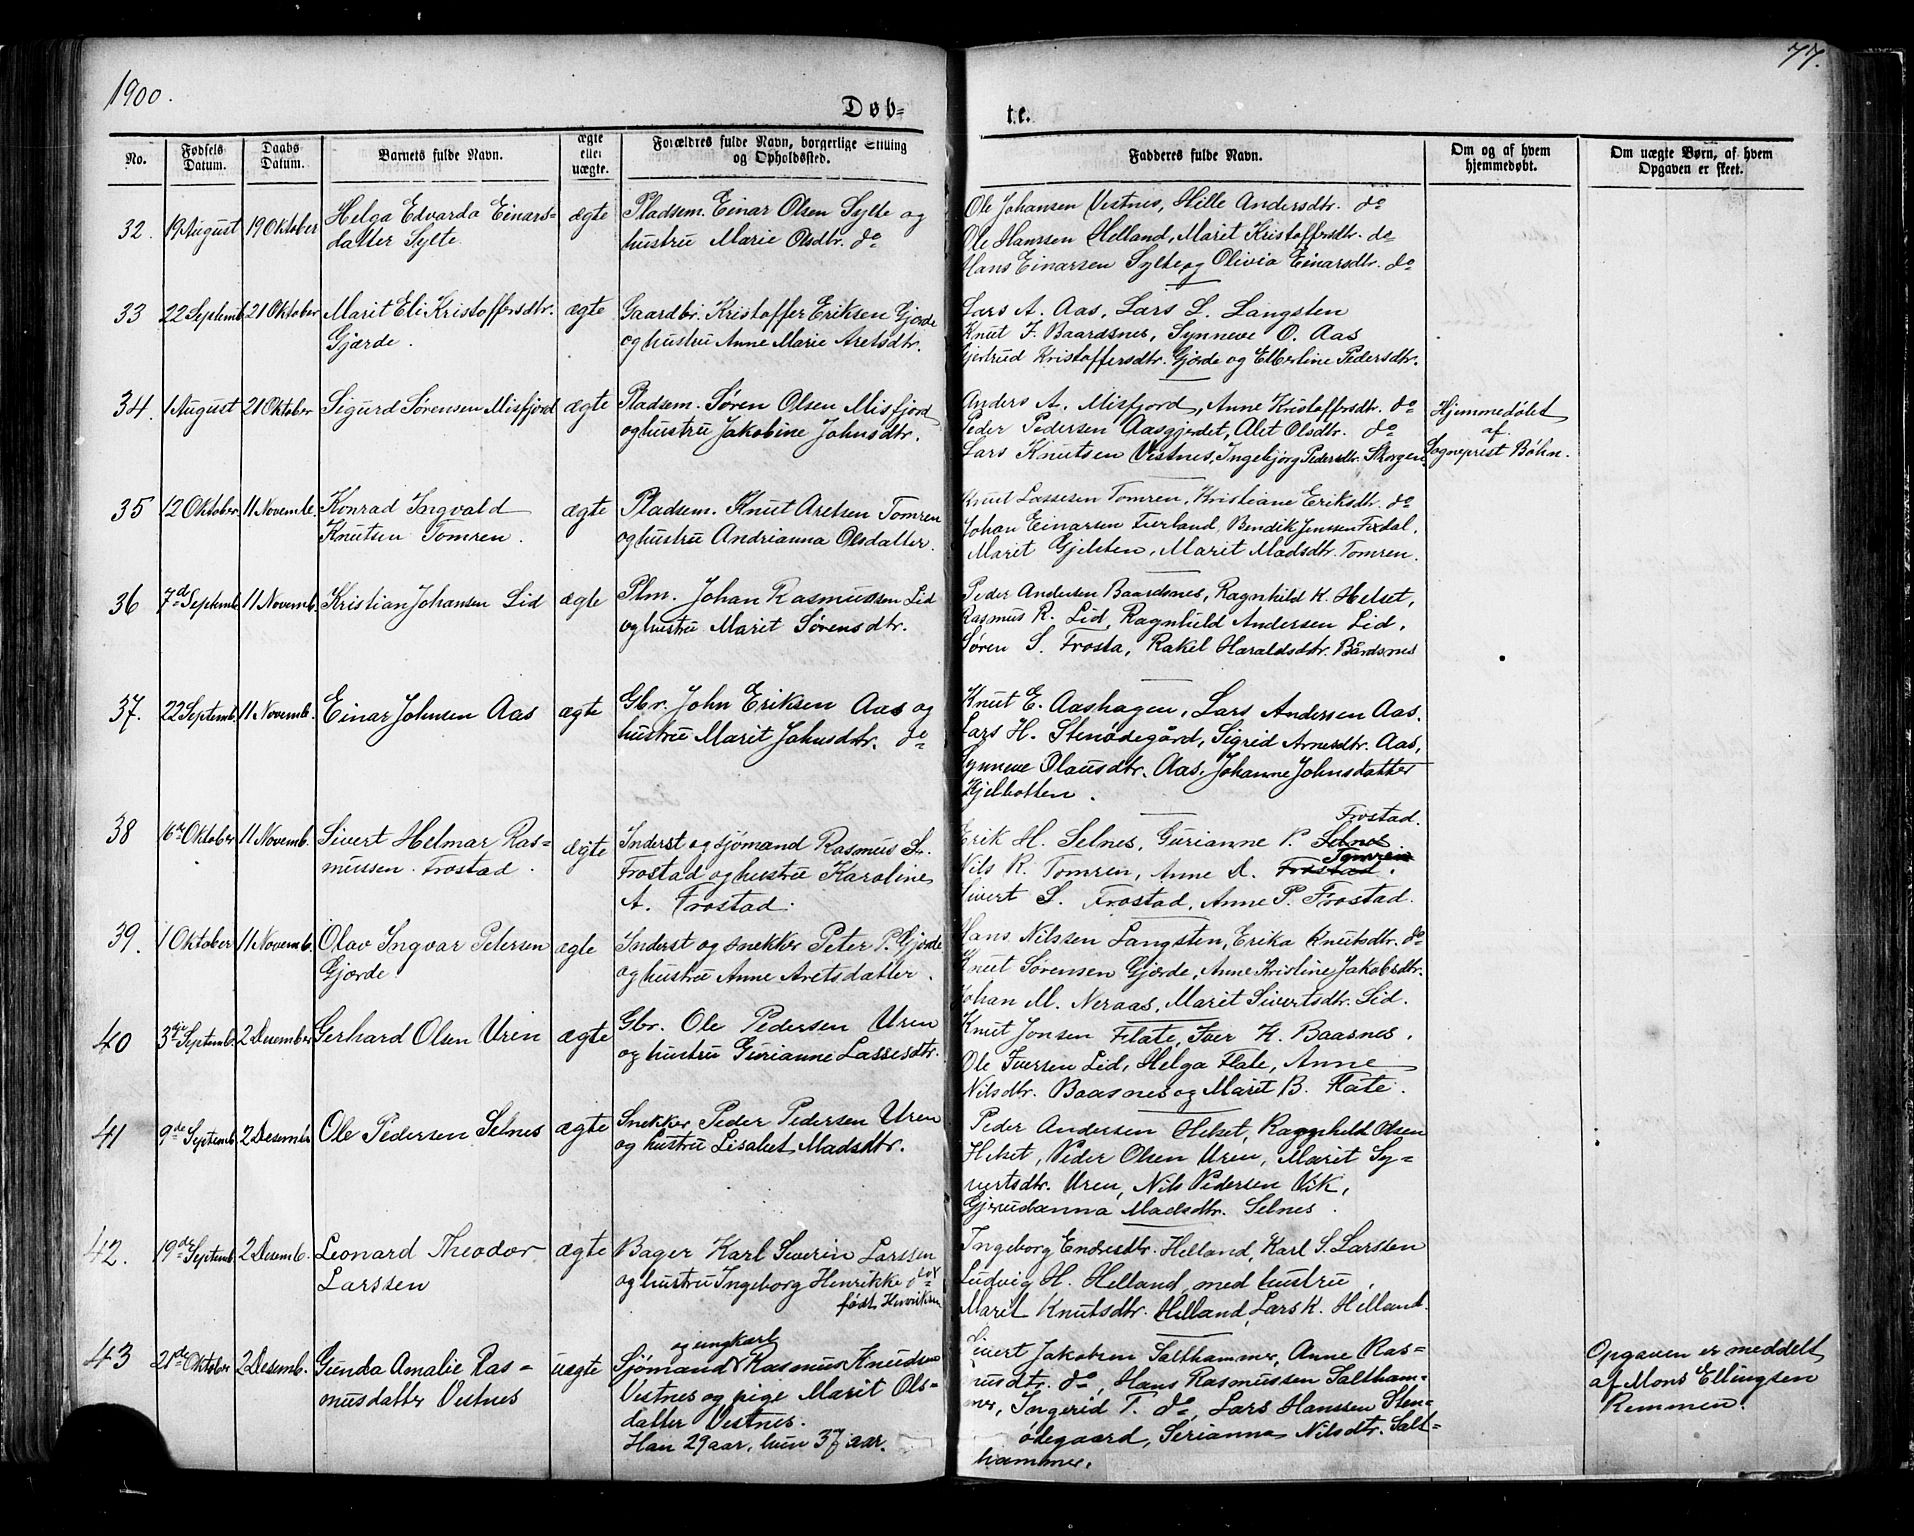 1900.
77.
Døb=
te.
No.
Fødsels Datum.
Daabs Datum.
Barnets fulde Navn.
ægte eller uægte.
Forældres fulde Navn, borgerlige Stilling og Opholdssted.
Fadderes fulde Navn.
Om og af hvem hjemmedøbt.
Om uægte Børn, af hvem Opgaven er skeet.
32. 19 August 19 Oktober Helga Edvarda Einars=
datter Sylte.
ægte
Pladsem. Einar Olsen Sylte og
hustru Marie Olsdtr. do
Ole Johansen Vestnes, Hille Andersdtr. do
Ole Hanssen Helland, Marit Kristoffersdtr. do
Hans Einarsen Sylte og Olivia Einarsdtr. do
33 22 Septemb. 21 Oktober Marit Eli Kristoffersdtr.
Gjærde.
ægte
Gaardbr. Kristoffer Eriksen Gjærde
og hustru Anne Marie Aretsdtr.
Lars A. Aas, Lars L. Langsten
Knut J. Baardsnes, Synneve O. Aas
Gjertrud Kristoffersdtr. Gjærde og Elbertine Pedersdtr.
34. 1 August 21 Oktober Sigurd Sørensen Misfjord
ægte
Pladsem. Søren Olsen Misfjord
og hustru Jakobine Johnsdtr.
Anders A. Misfjord, Anne Kristoffersdtr. do
Peder Pedersen Aasgjerdet, Alet Olsdtr. do
Lars Knutsen Vestnes, Ingebjørg Pedersdtr. Skorgen
Hjemmedøbt
af
Sogneprest Bøhn.
35 12 Oktober 11 Novemb. Konrad Ingvald
Knutsen Tomren.
ægte
Pladsem. Knut Aretsen Tomren
og hustru Andrianna Olsdatter.
Knut Lassesen Tomren, Kristiane Eriksdtr. do
Johan Einarsen Fierland, Bendik Jenssen Fixdal,
Marit Gjelsten, Marit Madsdtr. Tomren.
36 7de Septemb. 11 Novemb. Kristian Johansen Lid
ægte
Plm. Johan Rasmussen Lid
og hustru Marit Sørensdtr.
Peder Andersen Baardsnes, Ragnhild K. Helset,
Rasmus R. Lid, Ragnhild Andersen Lid,
Søren S. Frosta, Rakel Haraldsdtr. Bårdsnes
37. 22 Septemb. 11 Novemb. Einar Johnsen Aas
ægte
Gbr. John Eriksen Aas og
hustru Marit Johnsdtr. do
Knut E. Aashagen, Lars Andersen Aas.
Lars H. Stenødegård, Sigrid Arnesdtr. Aas,
Synneve Olausdtr. Aas, Johanne Johnsdatter
Kjelbotten.
38 16de Oktober 11 Novemb. Sivert Helmar Ras=
mussen Frostad.
ægte
Inderst og sjømand Rasmus S.
Frostad og hustru Karoline
A. Frostad.
Frostad.
Erik H. Selnes, Gurianne P. Selnes.
Tomren
Nils R. Tomren, Anne D. Frostad.
Sivert S. Frostad, Anne P. Frostad.
39. 1 Oktober 11 Novemb. Olav Ingvar Petersen
Gjærde
ægte
Inderst og snekker Peter P. Gjærde
og hustru Anne Aretsdatter.
Hans Nilssen Langsten, Erika Knutsdtr. do
Knut Sørensen Gjærde, Anne Kristine Jakobsdtr.
Johan M. Neraas, Marit Sivertsdtr. Lid.
40 3die Septemb. 2 Desember Gerhard Olsen Uren
ægte
Gbr. Ole Pedersen Uren
og hustru Gurianne Lassesdtr.
Knut Jonsen Flate, Iver K. Baasnes,
Ole Iversen Lid, Helga Flate, Anne
Nilsdtr. Baasnes og Marit B. Flate.
41 9de Septemb. 2 Desember Ole Pedersen Selnes
ægte
Snekker Peder Pedersen Uren
og hustru Lisabet Madsdtr.
Peder Andersen Helset, Ragnhild Olsen
Helset, Peder Olsen Uren, Marit Sy=
vertsdtr. Uren, Nils Pedersen Vik,
Gjerudanna Madsdtr. Selnes.
42. 19de Septemb. 2 Desemb. Leonard Theodor
Larssen
ægte
Bager Karl Severin Larssen
og hustru Ingeborg Henrikke do
født Henriksen
Ingeborg Endresdtr. Helland, Karl S. Larsen
Ludvig H. Helland, med hustru,
Marit Knutsdtr. Helland, Lars K. Helland.
43 21de Oktober 2 Desemb. Gunda Amalie Ras=
musdatter Vestnes
uægte
og ungkarl
Sjømand Rasmus Knudsen
Vestnes og pige Marit Ols=
datter Vestnes.
Han 29 aar, hun 37 aar.
Sivert Jakobsen Salthammer, Anne Ras=
musdtr. do, Hans Rasmussen Saltham=
mer, Ingerid T. do, Lars Hanssen Sten=
ødegaard, Serianna Nilsdtr. Salt=
hammer.
Opgaven er meddelt
af Mons Ellingsen
Remmen.